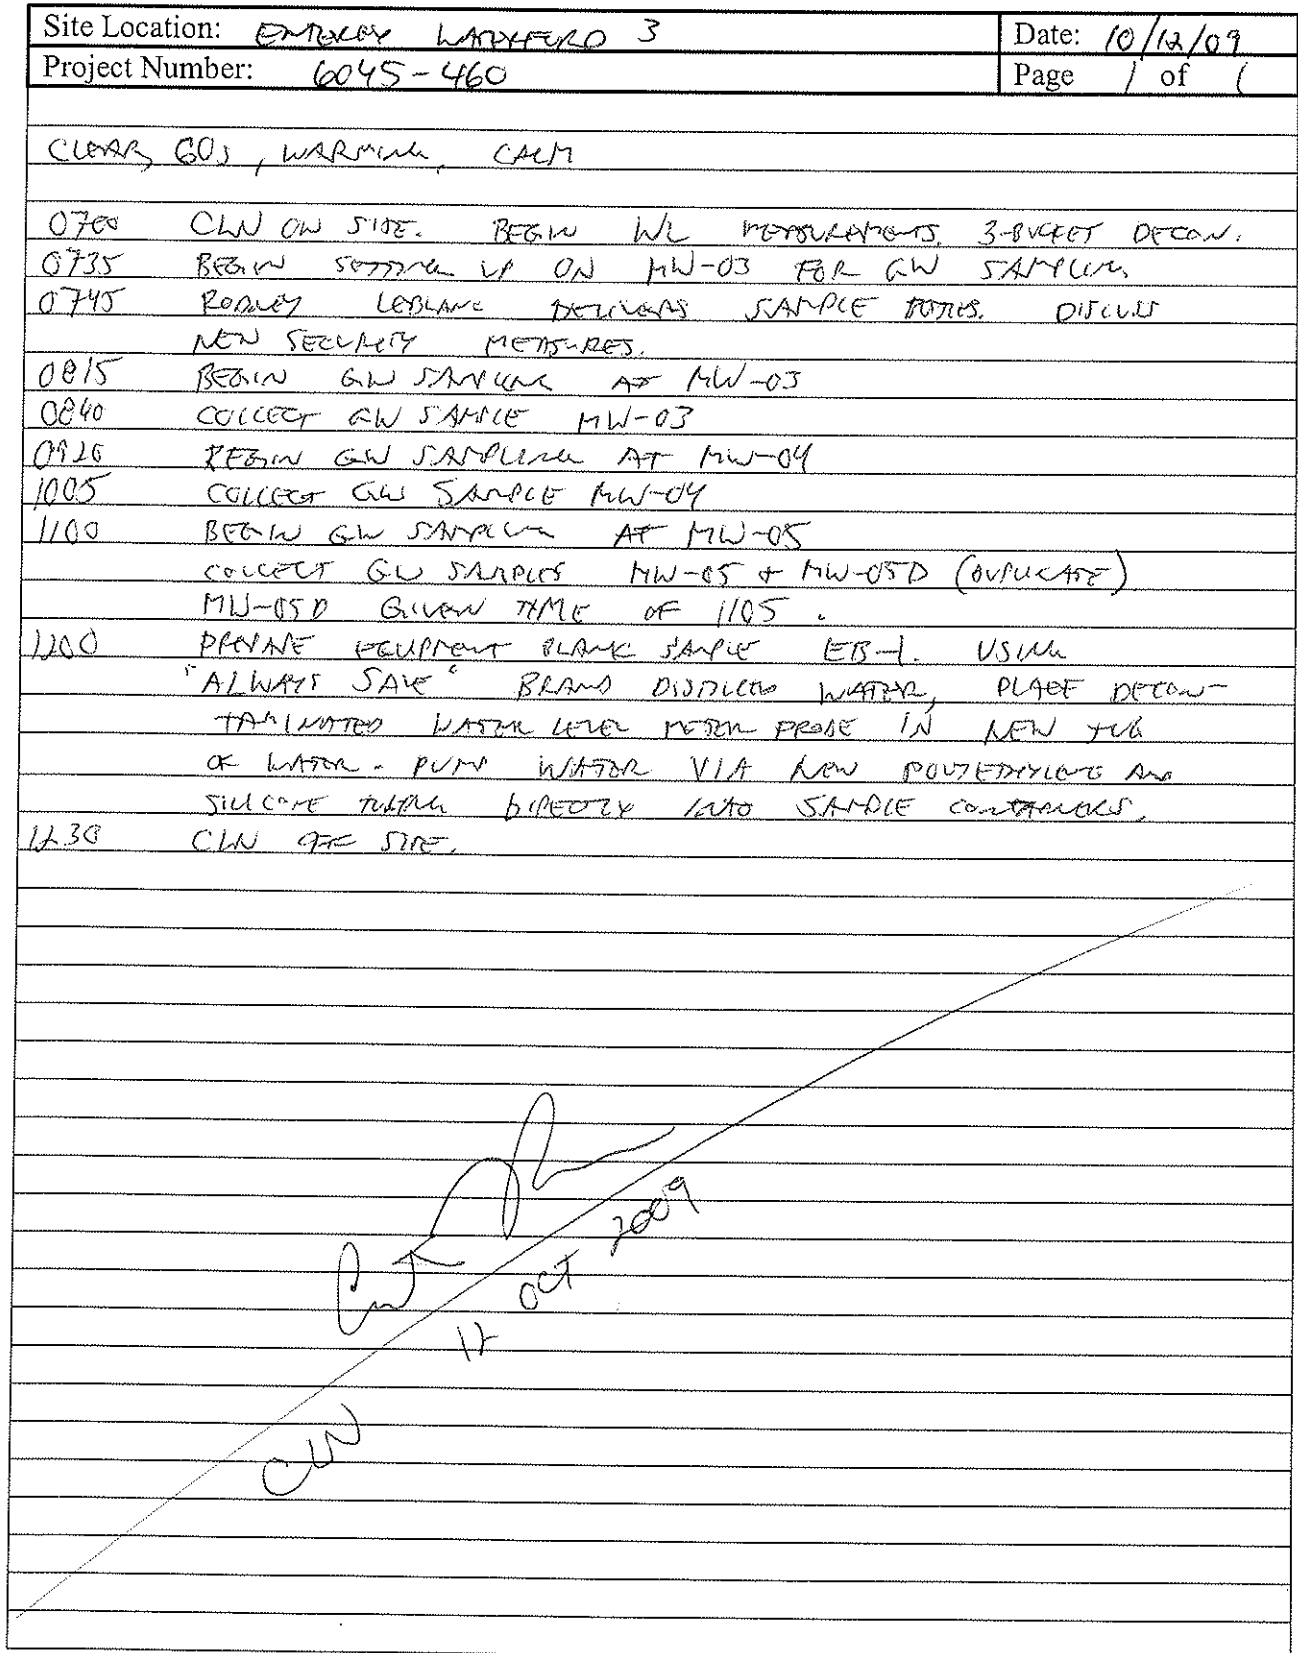 Site Location: ENTERGY WATERFORD 3
Date: 10/12/09
Project Number: 6045-460
Page 1 of 1
CLEAR, 60s, WARMING, CALM
0700 CLN ON SITE. BEGIN WL MEASUREMENTS. 3-BUCKET DECON.
0735 BEGIN SETTING UP ON MW-03 FOR GW SAMPLING.
0745 RODNEY LEBLANC DELIVERS SAMPLE BOTTLES. DISCUSS
NEW SECURITY MEASURES.
0815 BEGIN GW SAMPLING AT MW-03
0840 COLLECT GW SAMPLE MW-03
0920 BEGIN GW SAMPLING AT MW-04
1005 COLLECT GW SAMPLE MW-04
1100 BEGIN GW SAMPLING AT MW-05
COLLECT GW SAMPLES MW-05 + MW-05D (DUPLICATE)
MW-05D GIVEN TIME OF 1105.
1200 PREPARE EQUIPMENT BLANK SAMPLE EB-1. USING
"ALWAYS SAVE" BRAND DISTILLED WATER, PLACE DECON-
TAMINATED WATER LEVEL METER PROBE IN NEW JUG
OF WATER. PUMP WATER VIA NEW POLYETHYLENE AND
SILICONE TUBING DIRECTLY INTO SAMPLE CONTAINERS.
1230 CLN OFF SITE.
12 OCT 2009
CLN